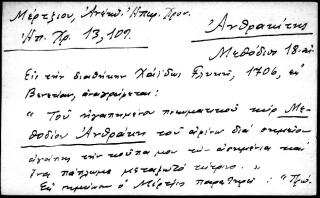 Μέρτζιου, Ανέκδ. Ηπειρ. Χρον.
Ηπ. Χρ. 13, 109.
Ανθρακίτης
Μεθόδιος 18. αι
Εις την διαθήκην Χαϊδώς Γλυκή, 1706, εν
Βενετία, αναγράφεται:
"Του ηγαπημένου πνευματικού κυρ Με-
θοδίου Ανθράκη του αφίνω διά σημείον
αγάπης την κούπα μου την ασημένια και
ένα πάπλωμα μεταξωτό κίτρινο."
Εν σημειώσει ο Μέρτζιος παρατηρεί: "Πρό-